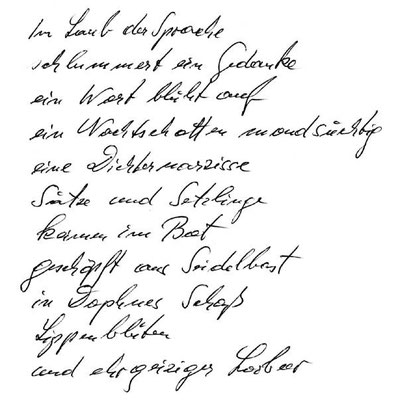 Im Laub der Sprache
schlummert ein Gedanke
ein Wort blüht auf
ein Nachtschatten mondsüchtig
eine Dichternarzisse
Sätze und Setzlinge
keimen im Beet
geschöpft aus Seidelbast
in Daphnes Schoß
Lippenblüten
und ehrgeiziger Lorbeer